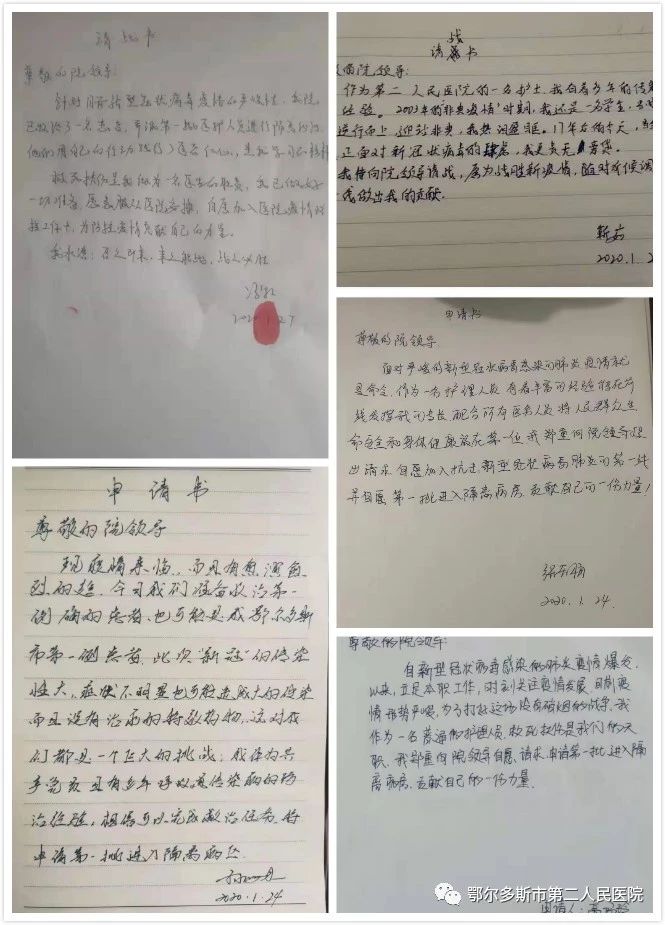 请战书
尊敬的院领导:
针对目前新型冠状病毒疫情的严峻性,我院
已收治了一名患者,
一切准备,愿意服从医院安排,自愿加入医院疫情防
控工作中,为防控疫情贡献自己的力量。
召之即来,来之能战,战之必胜
2020.1.27
请战书
院领导:
作为第二人民医院的一名护士,我有着多年的传染
经验。2003年的"非典疫情"时期,我还是一名学生,
逆行而上 迎战非典,我热泪盈眶。17年后的今天,当
正面对新冠状病毒的肆虐,我更责无旁贷。
我特向院领导请战,为战胜新疫情,随时听候调
线做出我的贡献。
靳茹
2020.1.2
申请书
尊敬的院领导
面对严峻的新型冠状病毒感染的肺炎疫情就
是命令,作为一名护理人员 有着丰富的经验 将在前
线发挥我的专长,配合所有医务人员 将人民群众生
命安全和身体健康放在第一位 我郑重向院领导提
出请求 自愿加入抗击新型冠状病毒肺炎的第一线
并自愿第一批进入隔离病房 贡献自己的一份力量!
2020.1.24.
申请书
尊敬的院领导
现疫情来临,而且有愈演愈
烈的趋,今日我们准备收治第一
例确诊患者,也可能是我鄂尔多斯
市第一例患者,此次"新冠"的传染
性大,症状不明显也可能造成大的传染
而且没有治病的特效药物,这对我
们都是一个巨大的挑战,我作为共
产党员且有多年呼吸道传染病的防
治经验,相信可以完成救治任务,特
申请第一批进入隔离病区
2020.1.24
尊敬的院领导:
自新型冠状病毒感染的肺炎疫情爆发
以来,立足本职工作,时刻关注疫情发展,目前疫
情形势严峻,为了打赢这场没有硝烟的战争,我
作为一名普通的护理员,救死扶伤是我们的天
职,我郑重向院领导自愿请求,申请第一批进入隔
离病房,贡献自己的一份力量.
申请人:高
鄂尔多斯市第二人民医院